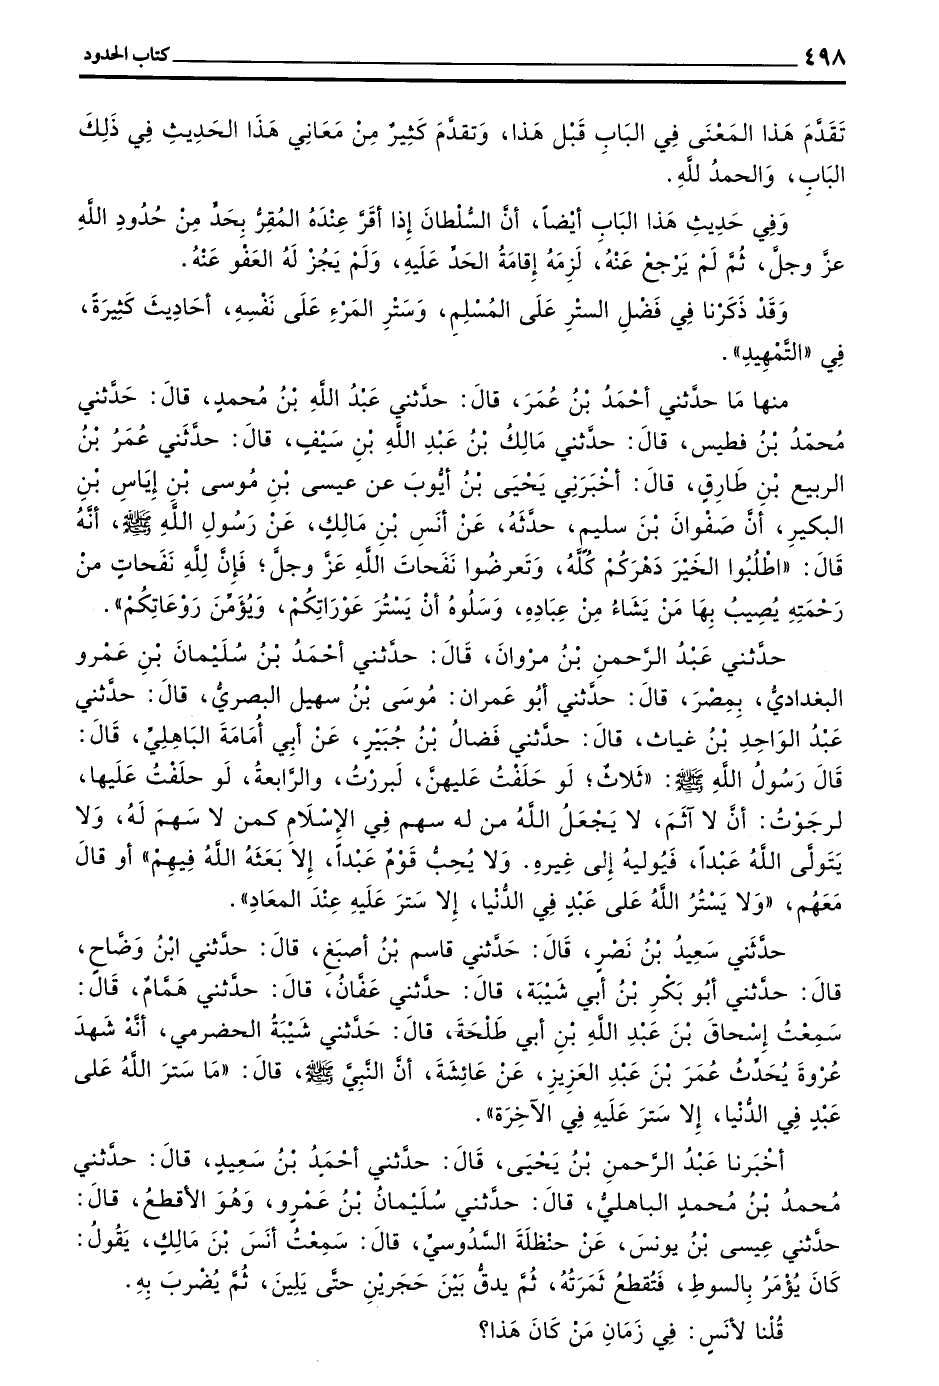 ٤٩٨ كتاب الحدود
تَقَدَّمَ هَذا المَعْنَى فِي البَابِ قَبْل هَذا، وَتقدَّمَ كَثِيرٌ مِنْ مَعَانِي هَذَا الحَدِيثِ فِي ذَلِكَ
البَابِ، وَالحمدُ للَّهِ.
وَفِي حَدِيثِ هَذا البَابِ أيْضاً، أنَّ السُّلْطانَ إذا أقَرَّ عِنْدَهُ المُقِرُّ بِحَدٍّ مِنْ حُدُودِ اللَّهِ
عزَّ وجلَّ، ثُمَّ لَمْ يَرْجعْ عَنْهُ، لَزِمَهُ إقامَةُ الحَدِّ عَلَيهِ، وَلَمْ يَجُزْ لَهُ العَفْو عَنْهُ.
وَقَدْ ذَكَرْنا فِي فَضْلِ الستْرِ عَلَى المُسْلِمِ، وَسَتْرِ المَرْءِ عَلَى نَفْسِهِ، أحَادِيثَ كَثِيرَةً،
فِي «التَّمْهِيدِ».
منها مَا حدَّثني أحْمَدُ بْنُ عُمَرَ، قالَ: حدَّثني عَبْدُ اللَّهِ بْنُ مُحمدٍ، قالَ: حَدَّثني
مُحمّدُ بْنُ فطيس، قالَ: حدَّثني مَالِكُ بْنُ عَبْدِ اللَّهِ بْنِ سَيْفٍ، قالَ: حدَّثَني عُمَرُ بْنُ
الربيع بْنِ طَارِقٍ، قالَ: أخْبَرَنِي يَحْيَى بْنُ أيُّوبَ عن عيسى بْنِ مُوسى بْنِ إيَاسِ بْنِ
البكير، أنَّ صَفْوانَ بْنَ سليم، حدَّثَهُ، عَنْ أنَس بْنِ مَالِكٍ، عَنْ رَسُولِ اللَّهِ ﷺ، أنَّهُ
قَالَ: «اطْلُبُوا الخَيْرَ دَهْرَكُمْ كُلَّهُ، وَتَعرضُوا نَفَحاتَ اللَّهِ عَزَّ وجلَّ؛ فَإنَّ لِلَّهِ نَفَحاتٍ منْ
رَحْمَتِهِ يُصِيبُ بِهَا مَنْ يَشَاءُ مِنْ عِبَادِهِ، وَسَلُوهُ أنْ يَسْتُرَ عَوْرَاتِكُمْ، وَيُؤَمِّنَ رَوْعَاتِكُمْ».
حدَّثني عَبْدُ الرَّحمنِ بْنُ مرْوانَ، قَالَ: حدَّثني أحْمَدُ بْنُ سُلَيْمانَ بْنِ عَمْرو
البغداديُّ، بِمِصْرَ، قالَ: حدَّثني أبُو عَمران: مُوسَى بْنُ سهيل البصريُّ، قالَ: حدَّثني
عَبْدُ الوَاحِدِ بْنُ غياث، قالَ: حدَّثني فَضالُ بْنُ جُبَيْرٍ، عَنْ أبي أُمَامَةَ البَاهِلِيِّ، قَالَ:
قَالَ رَسُولُ اللَّهِ ﷺ: «ثَلاثٌ؛ لَو حَلَفْتُ عَليهنَّ، لَبررْتُ، والرَّابعةُ، لَو حلَفْتُ عَليها،
لرجَوْتُ: أنَّ لا آثَمَ، لا يَجْعَلُ اللَّهُ من له سهم فِي الإسْلَامِ كمن لا سَهمَ لَهُ، وَلا
يَتَولَّى اللَّهُ عَبْداً، فَيُوليهُ إلى غيرِهِ. وَلا يُحِبُّ قَوْمٌ عَبْداً، إلاَ بَعَثَهُ اللَّهُ فِيهِمْ» أو قالَ
مَعَهُم، «وَلا يَسْتُرُ اللَّهُ عَلى عَبْدٍ فِي الدُّنْيا، إلا سَترَ عَلَيهِ عِنْدَ المعَادِ».
حدَّثَني سَعِيدُ بْنُ نَصْرٍ، قَالَ: حَدَّثني قاسم بْنُ أصبَغِ، قالَ: حدَّثني ابْنُ وَضَّاحٍ،
قالَ: حدَّثني أبُو بَكْرِ بْنُ أبي شَيْبَة، قالَ: حدَّثني عَفَّانُ، قالَ: حدَّثني هَمَّامٌ، قَالَ:
سَمِعْتُ إسْحاقَ بْنَ عَبْدِ اللَّهِ بْنِ أبي طَلْحَةَ، قالَ: حَدَّثني شَيْبَةُ الحضرمي، أنَّهْ شَهدَ
عُرْوةَ يُحَدِّثُ عُمَرَ بْنَ عَبْدِ العَزِيزِ، عَنْ عَائِشَةَ، أنَّ النَّبِيَّ ﷺ، قالَ: «مَا سترَ اللَّهُ عَلى
عَبْدٍ فِي الدُّنْيا، إلا سَترَ عَلَيهِ فِي الآخِرَة».
أخْبَرنا عَبْدُ الرَّحمنِ بْنُ يَحْيَى، قَالَ: حدَّثني أحْمَدُ بْنُ سَعِيدٍ، قالَ: حدَّثني
مُحمدُ بْنُ مُحمدٍ الباهليُّ، قالَ: حدَّثني سُلَيْمانُ بْنُ عَمْرٍو، وَهُوَ الأقطعُ، قالَ:
حدَّثني عِيسى بْنُ يونسَ، عَنْ حنْظلَةَ السَّدُوسيِّ، قالَ: سَمِعْتُ أنَسَ بْنَ مَالِكٍ، يَقُولُ:
كَانَ يُؤْمَرُ بِالسوطِ، فَتُقطعُ ثَمَرتُهُ، ثُمَّ يدقُّ بَيْنَ حَجَريْنِ حتَّى يَلِينَ، ثُمَّ يُضْربَ بِهِ.
قُلْنا لأنَسٍ: فِي زَمَانِ مَنْ كَانَ هَذا؟